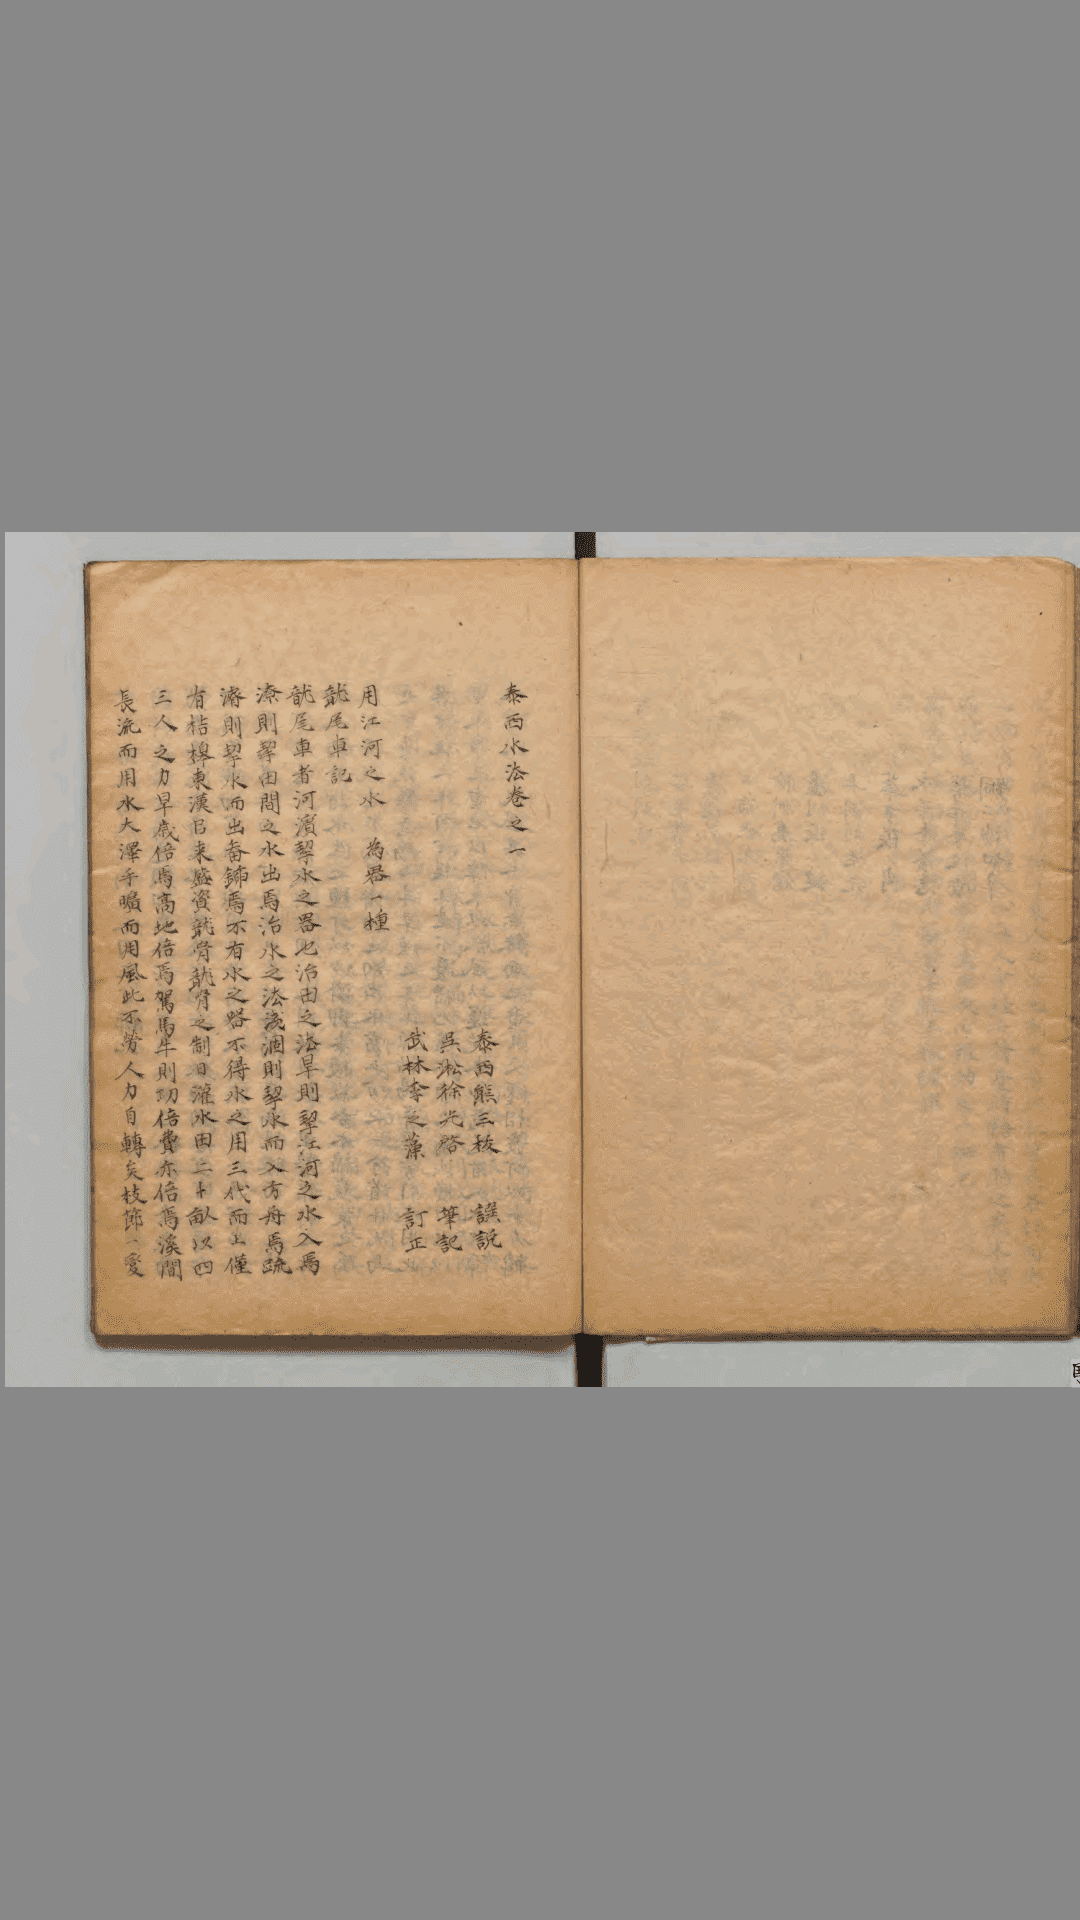 泰西水法卷之一
泰西熊三拔 譔說
吳淞徐光啓 筆記
武林李之藻 訂正
用江河之水 為器一種
龍尾車記
龍尾車者河濱挈水之器也治田之法旱則挈江河之水入焉
潦則挈田間之水出焉治水之法淺涸則挈水而入方舟焉疏
濬則挈水而出畚鍤焉不有水之器不得水之用三代而上僅
有桔橰東漢㠯来盛資龍骨龍骨之制日灌水田二十畝以四
三人之力旱歲倍焉高地倍焉駕馬牛則功倍費亦倍焉溪澗
長流而用水大澤平曠而用風此不勞人力自轉矣枝節一愛